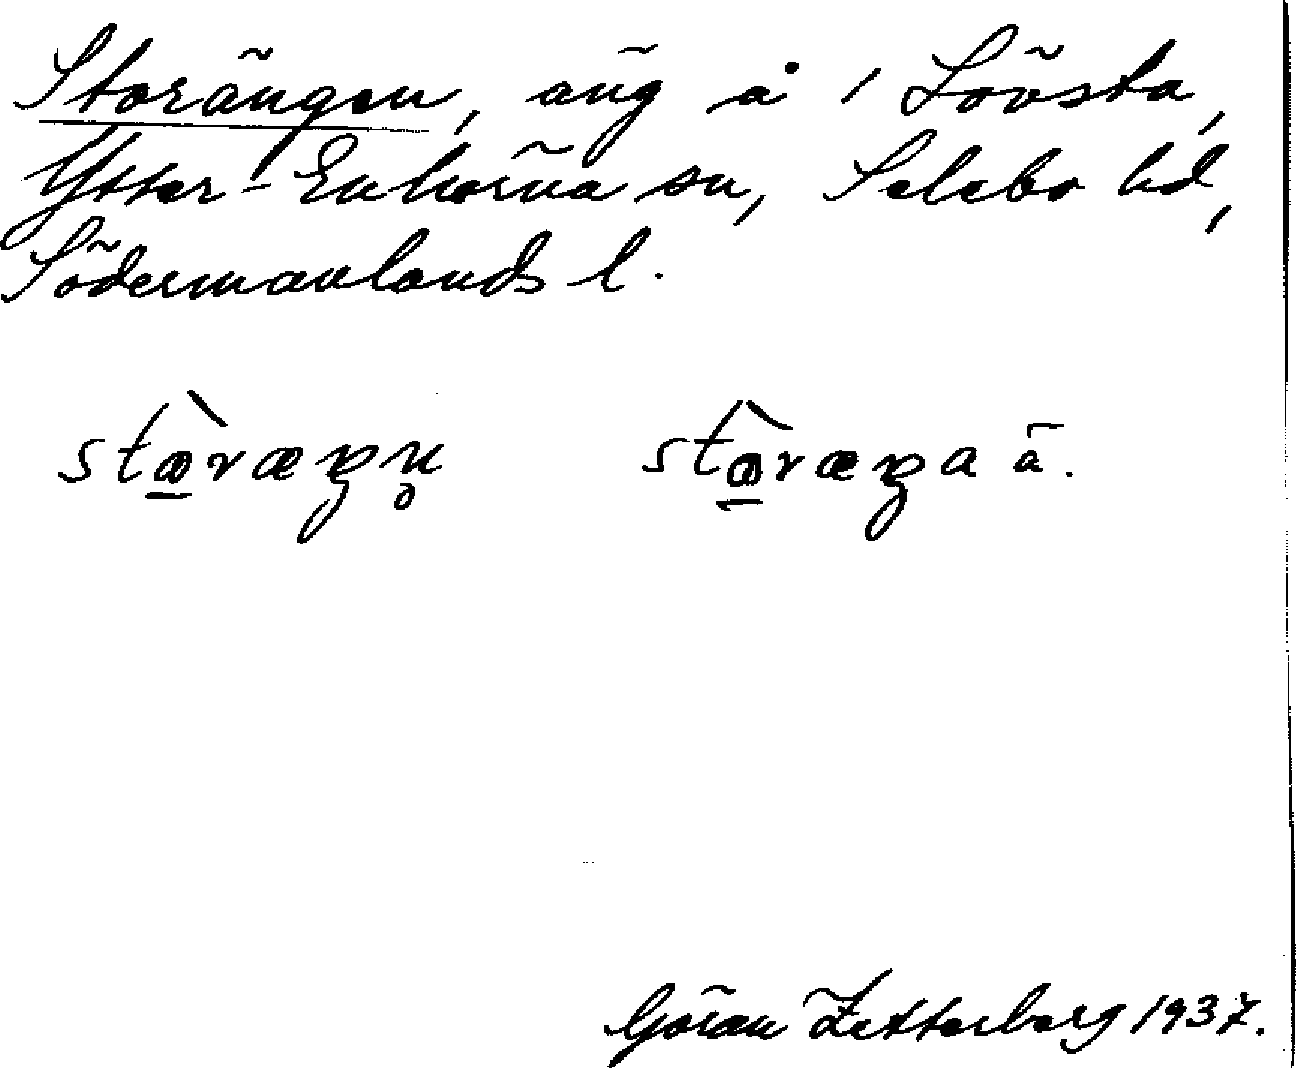 Storängen, äng å i Lövsta,
Ytter-Enhörna sn, Selebo hd,
Södermanlands l.
Göran Zetterberg 1937.